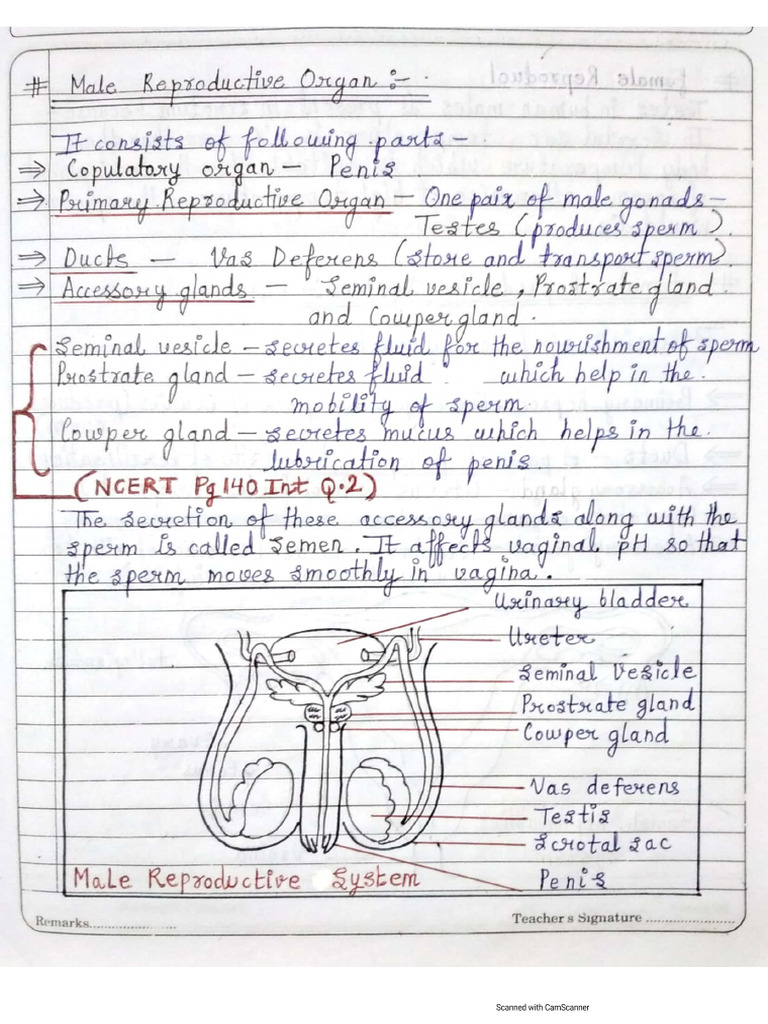 # Male Reproductive Organ :-
It consists of following parts -
⇒ Copulatory organ - Penis
⇒ Primary Reproductive Organ - One pair of male gonads -
Testes (produces sperm).
⇒ Ducts - Vas Deferens (store and transport sperm).
⇒ Accessory glands - Seminal vesicle, Prostrate gland
and Cowper gland.
Seminal vesicle - secretes fluid for the nourishment of sperm
Prostrate gland - secretes fluid which help in the
mobility of sperm.
Cowper gland - secretes mucus which helps in the
lubrication of penis
(NCERT Pg 140 Int Q.2)
The secretion of these accessory glands along with the
sperm is called semen. It affects vaginal pH so that
the sperm moves smoothly in vagina.
Urinary bladder
Ureter
Seminal Vesicle
Prostrate gland
Cowper gland
Vas deferens
Testis
Scrotal sac
Penis
Male Reproductive System
Remarks....................
Teacher's Signature ....................
Scanned with CamScanner